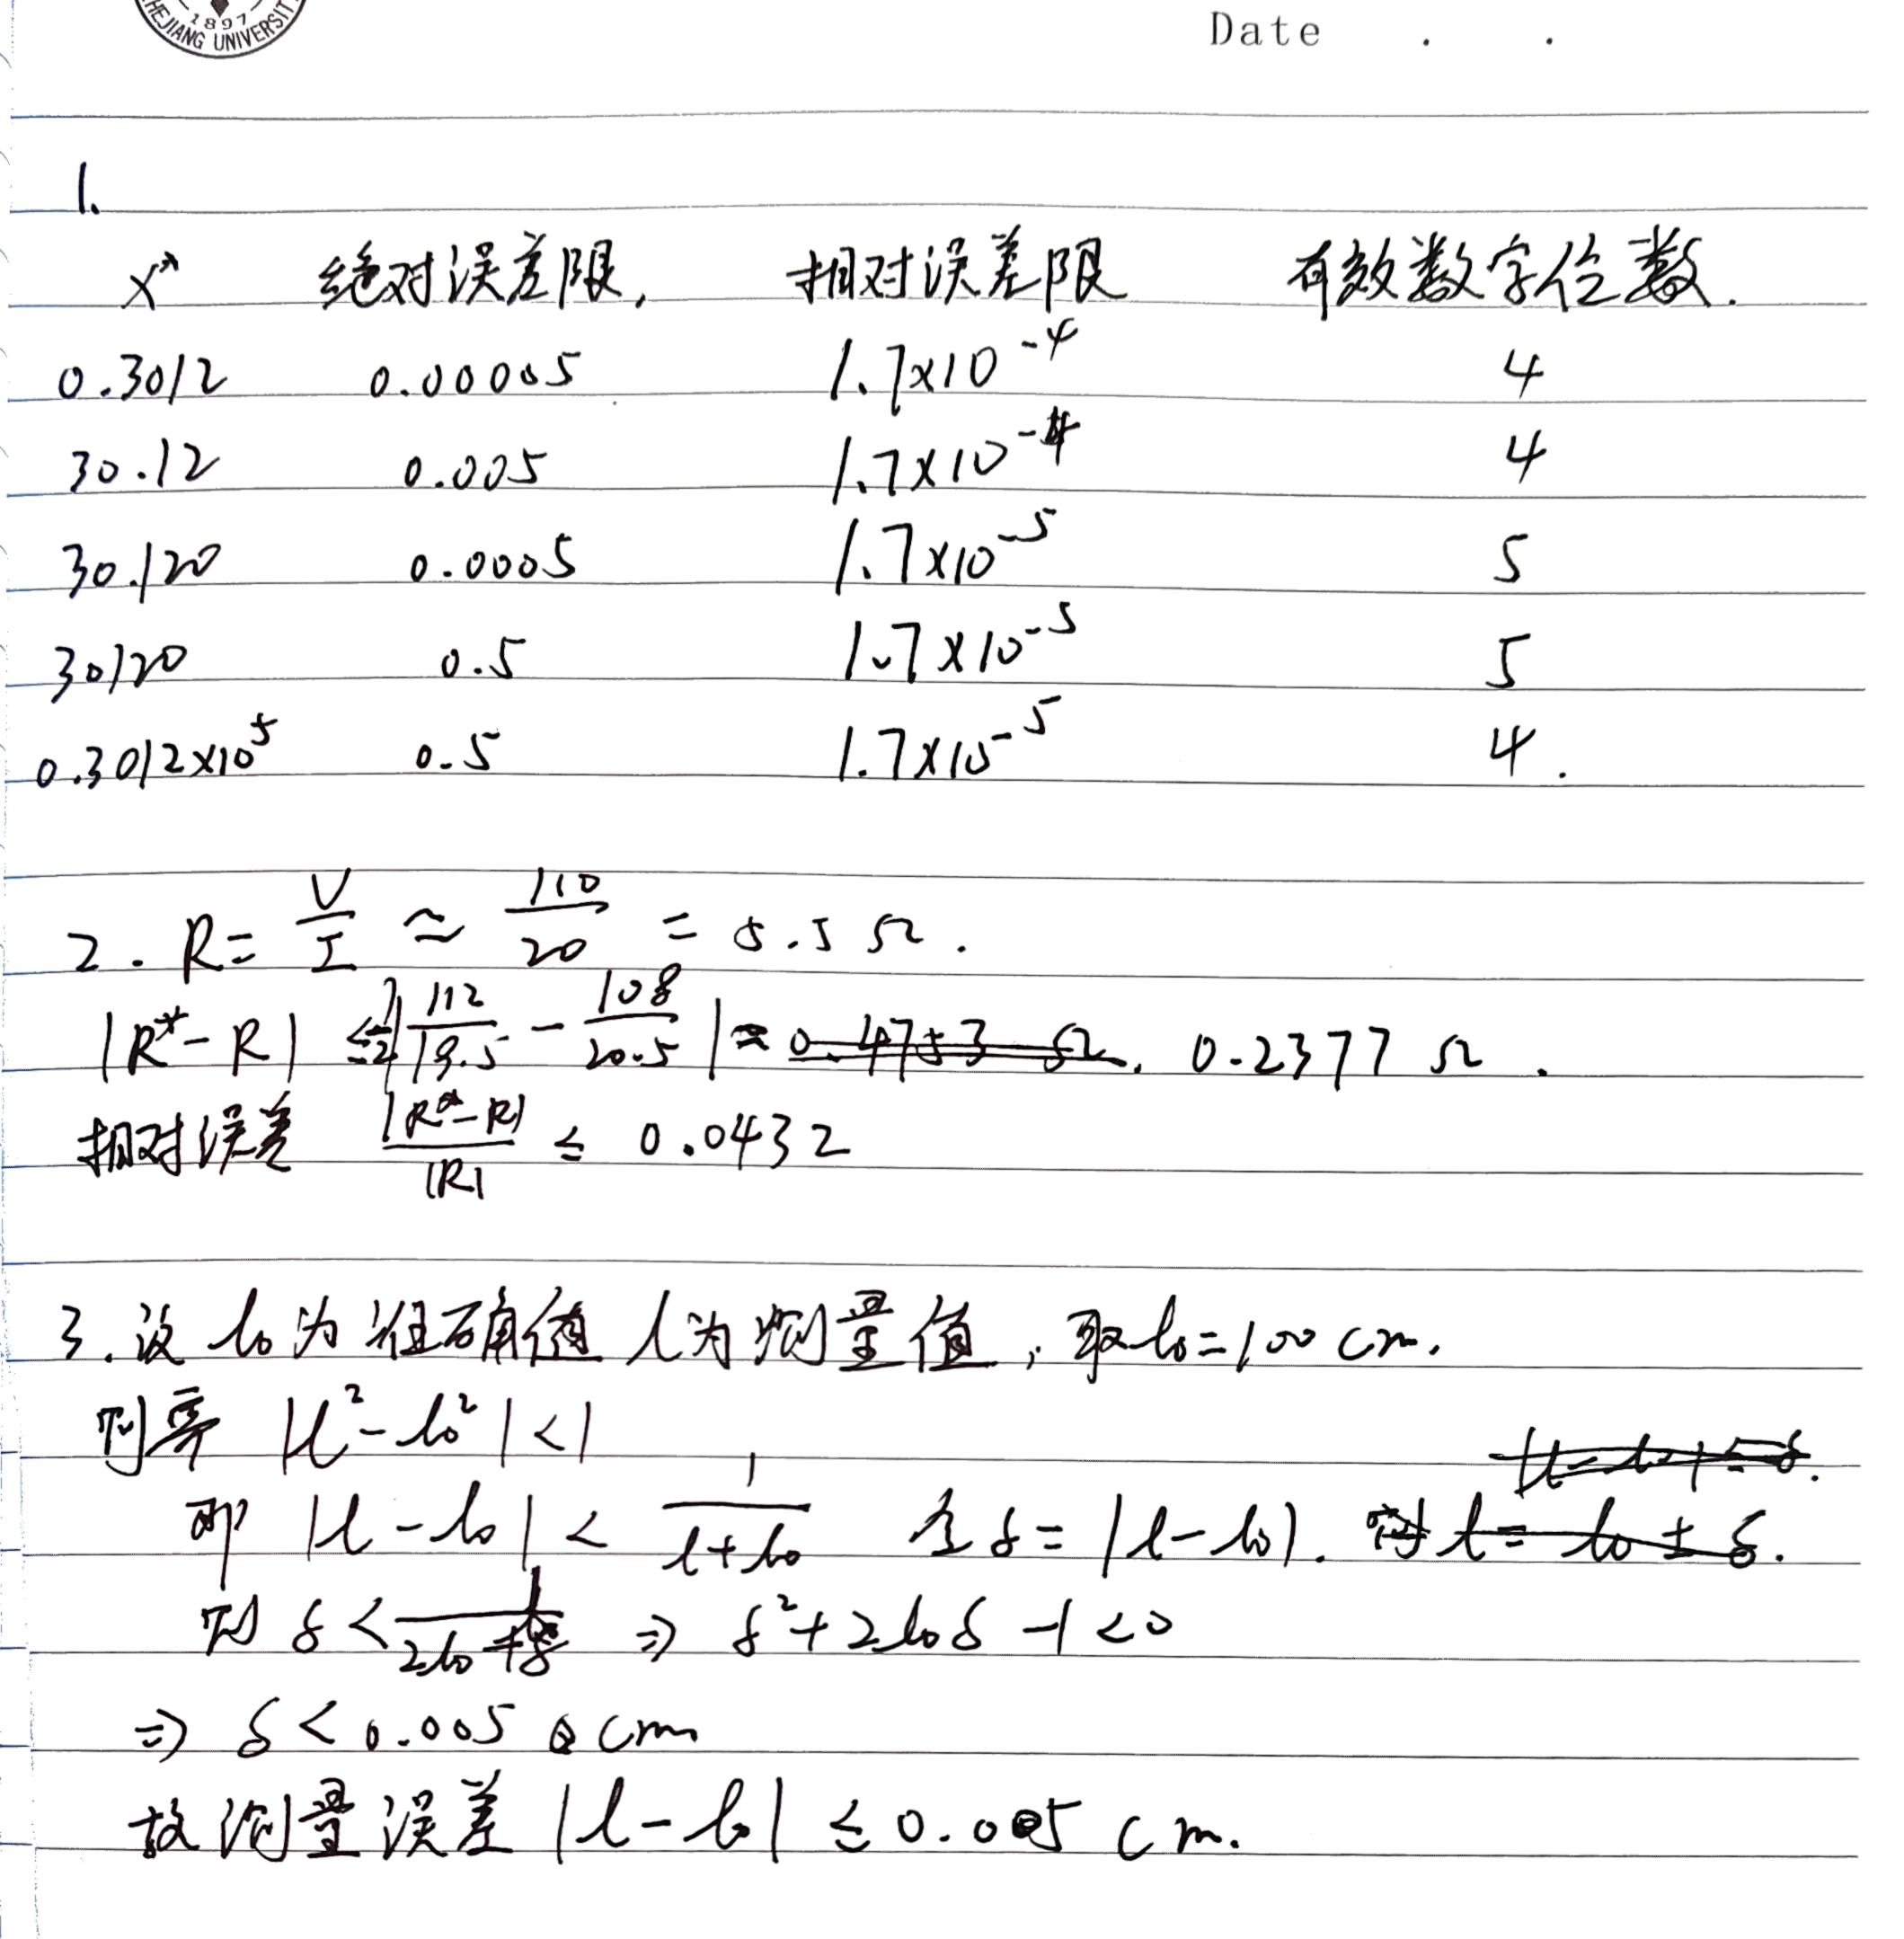 1897
HEJIANG UNIVERSIT
Date . .
1.
x* 绝对误差限, 相对误差限 有效数字位数.
0.3012 0.00005 1.7×10⁻⁴ 4
30.12 0.005 1.7×10⁻⁴ 4
30.120 0.0005 1.7×10⁻⁵ 5
30120 0.5 1.7×10⁻⁵ 5
0.3012×10⁵ 0.5 1.7×10⁻⁵ 4.
2. R = V/I ≈ 110/20 = 5.5 Ω.
|R* - R| ≤ 1/2 |112/19.5 - 108/20.5| = 0.4753 Ω. 0.2377 Ω.
相对误差 |R*-R|/|R| ≤ 0.0432
3. 设 l₀ 为准确值 l 为测量值, 取 l₀ = 100 cm.
则需 |l² - l₀²| < 1
|l - l₀| ≤ δ.
即 |l - l₀| < 1/(l+l₀) 令 δ = |l - l₀|. l = l₀ ± δ.
则 δ < 1/(2l₀+δ) ⇒ δ² + 2l₀δ - 1 < 0
⇒ δ < 0.005 cm
故测量误差 |l - l₀| ≤ 0.005 cm.